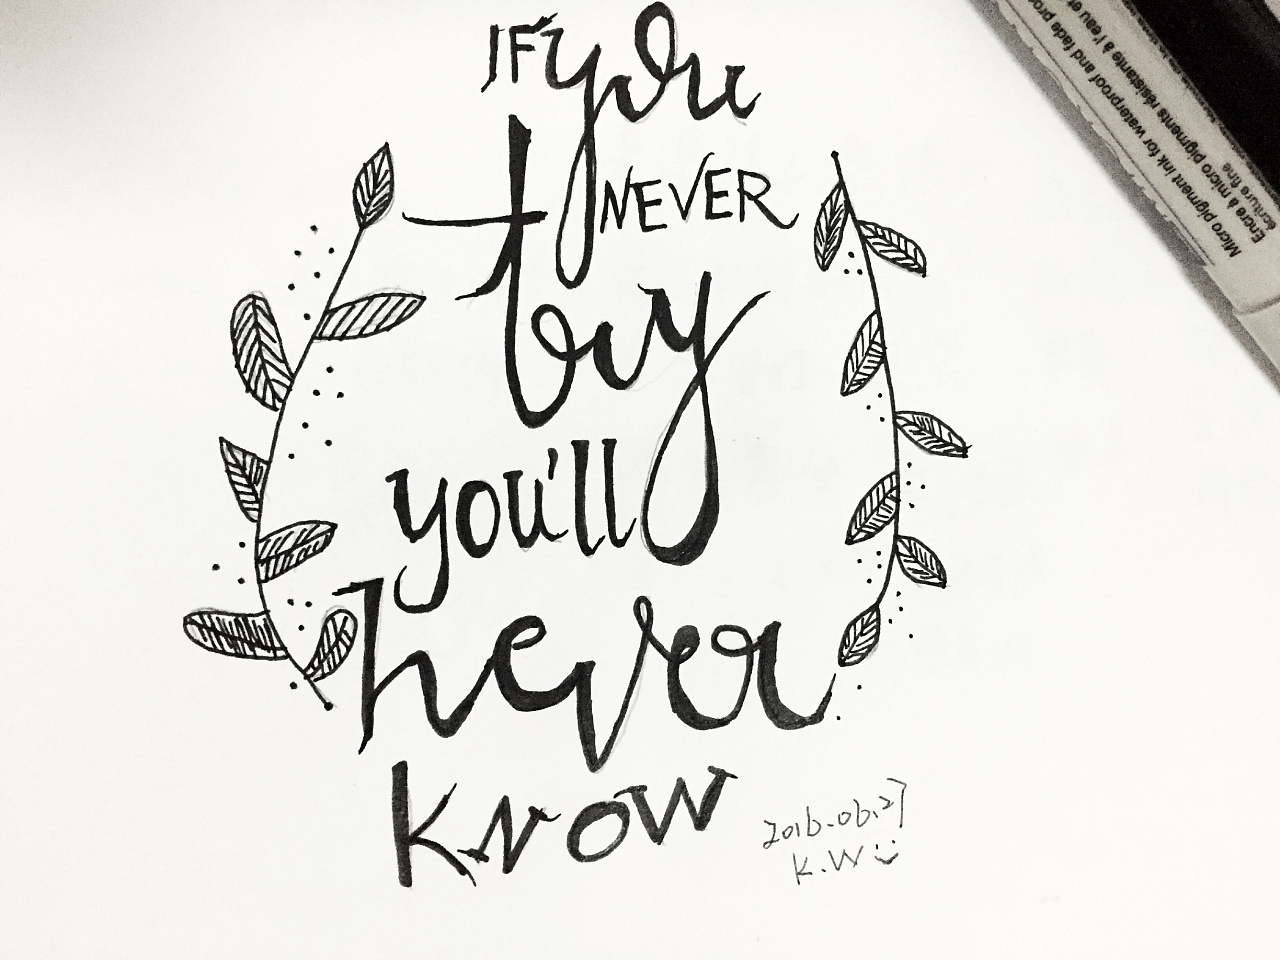 IF you
NEVER
try
you'll
never
KNOW
2016.06.27
K.W
Micro pigment ink for waterproof and fade proo
Encre à micro pigments résistante à l'eau et
écriture fine